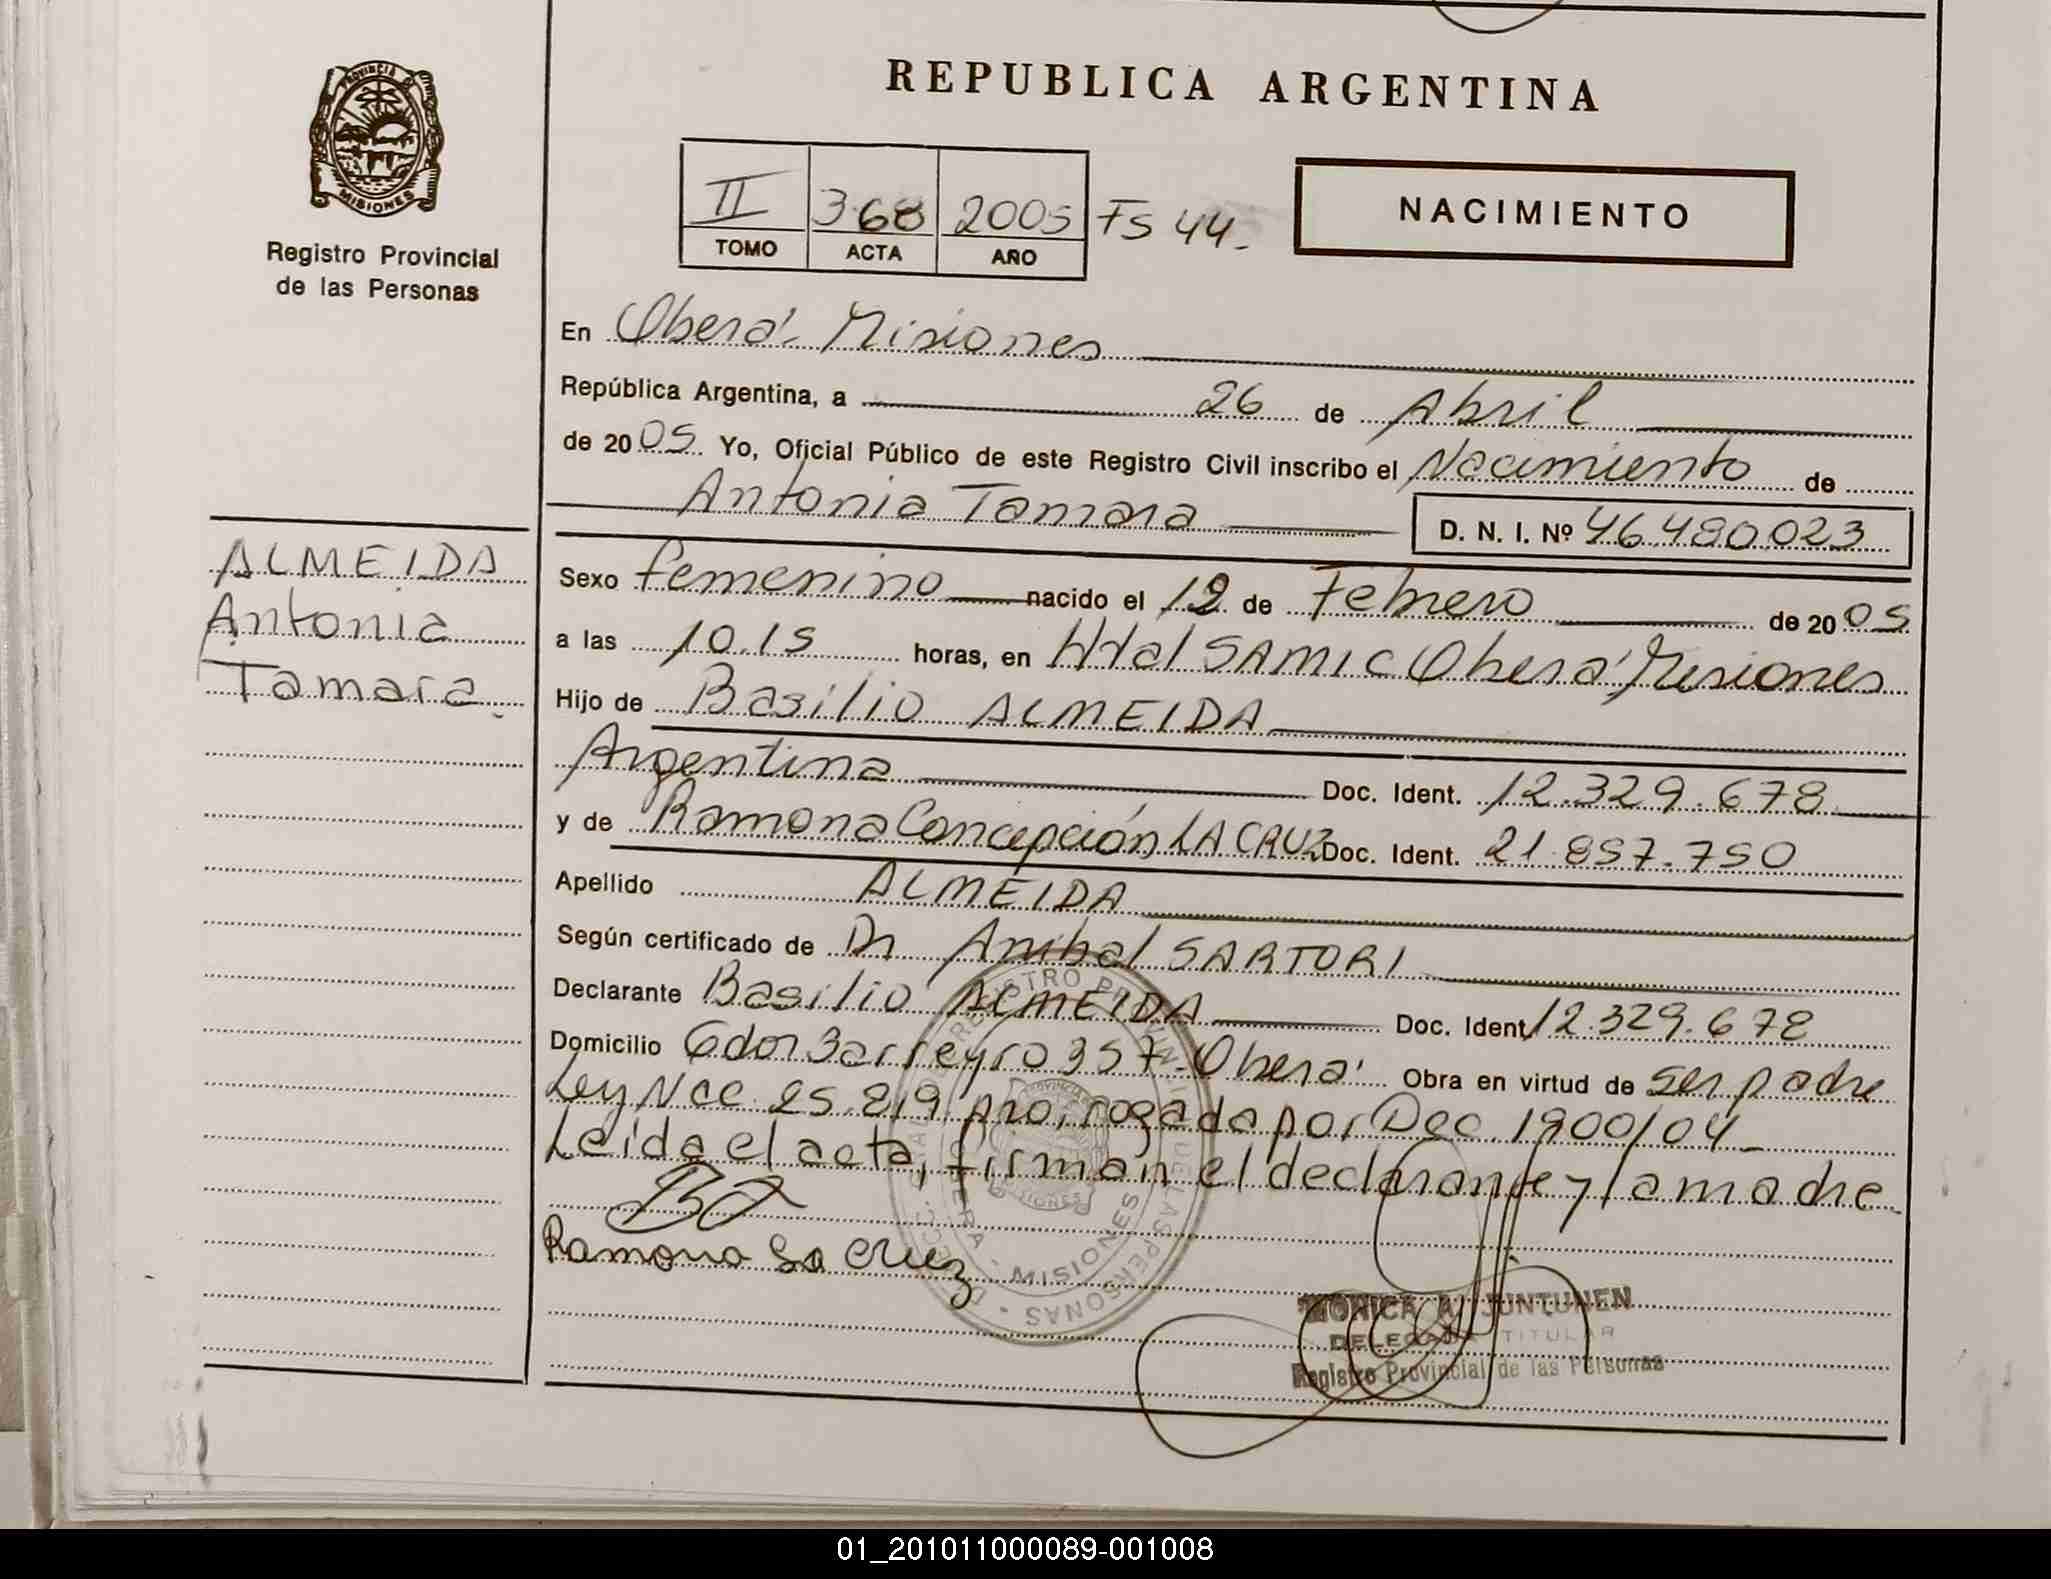 REPUBLICA ARGENTINA
PROVINCIA DE
MISIONES
Registro Provincial
de las Personas
II 368 2005 FS 44.
TOMO ACTA AÑO
NACIMIENTO
En Oberá- Misiones
República Argentina, a 26 de Abril
de 2005. Yo, Oficial Público de este Registro Civil inscribo el Nacimiento de
Antonia Tamara D. N. I. Nº 46.480.023
ALMEIDA
Antonia
Tamara
Sexo femenino nacido el 12 de Febrero de 2005
a las 10.15 horas, en Htal SAMIC Oberá, Misiones
Hijo de Basilio ALMEIDA
Argentina Doc. Ident. 12.329.678
y de Ramona Concepción LA CRUZ Doc. Ident. 21.857.750
Apellido ALMEIDA
Según certificado de Dr Anibal SARTORI
Declarante Basilio ALMEIDA Doc. Ident 12.329.678
Domicilio Gdor Barreyro 357-Oberá Obra en virtud de ser padre
Ley Nac 25.819 prorrogada por Dec. 1900/04
Leida el acta, firman el declarante y la madre
Ramona La Cruz
REGISTRO PROVINCIAL DE LAS PERSONAS
OBERA - MISIONES
MONICA A. JUNTUNEN
DELEGADA TITULAR
Registro Provincial de las Personas
01_201011000089-001008